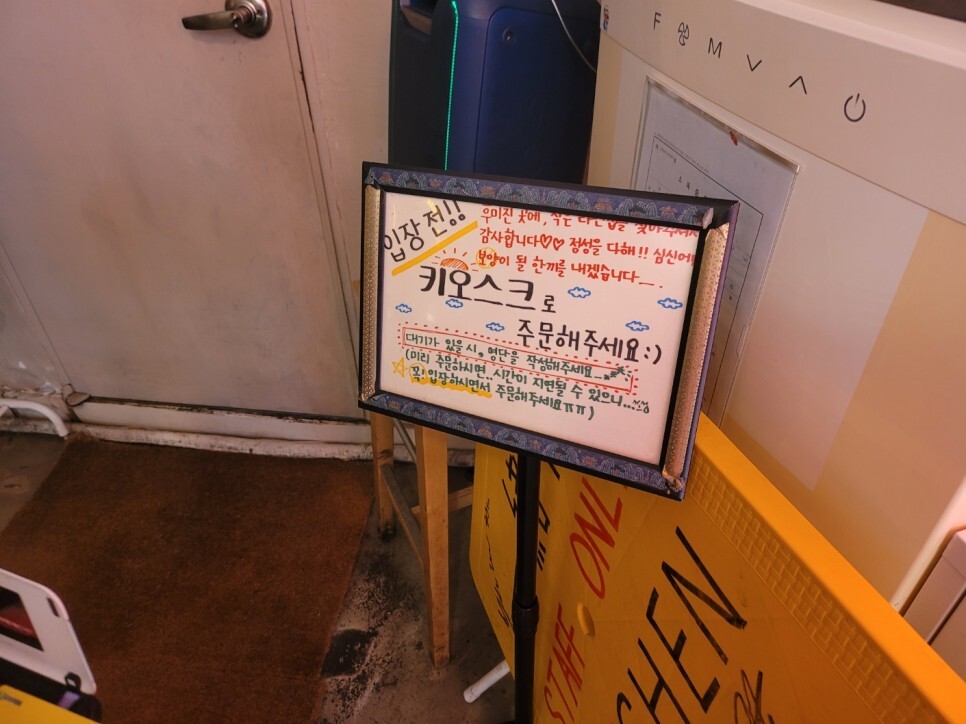 F M
입장 전!!
우미진 곳에, 작은
감사합니다♡♡ 정성을 다해!! 심신에
보양이 될 한끼를 내겠습니다__.
키오스크로
주문해주세요:)
대기가 있을 시, 명단을 작성해주세요
(미리 주문하시면.. 시간이 지연될 수 있으니...
꼭! 입장하시면서 주문해주세요ㅠㅠ)
STAFF ONL
CHEN